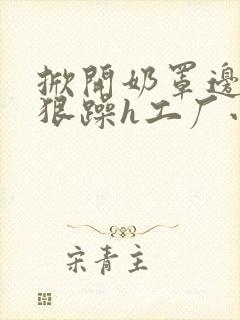 掀開奶罩邊
狠躁h工厂
宋青主